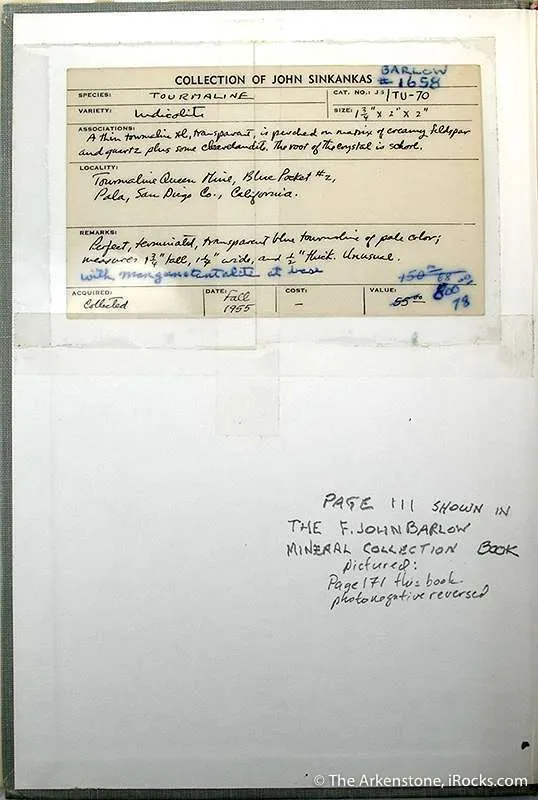 COLLECTION OF JOHN SINKANKAS
BARLOW
# 1658
SPECIES: TOURMALINE
CAT. NO.: JS/TU-70
VARIETY: Indicolite
SIZE: 1 3/4" X 2" X 2"
ASSOCIATIONS: A thin tourmaline xl, transparent, is perched on matrix of creamy feldspar
and quartz plus some cleavelandite. The root of the crystal is schorl.
LOCALITY:
Tourmaline Queen Mine, Blue Pocket #2,
Pala, San Diego Co., California.
REMARKS:
Perfect, terminated, transparent blue tourmaline of pale color;
measures 1 3/4" tall, 1 1/4" wide, and 1/2" thick. Unusual.
with manganotantalite at base
ACQUIRED: Collected
DATE: Fall
1955
COST: –
VALUE: 55.00
150.00
800
78
PAGE 111 SHOWN IN
THE F. JOHN BARLOW
MINERAL COLLECTION BOOK
pictured:
Page 171 this book.
photo negative reversed
© The Arkenstone, iRocks.com